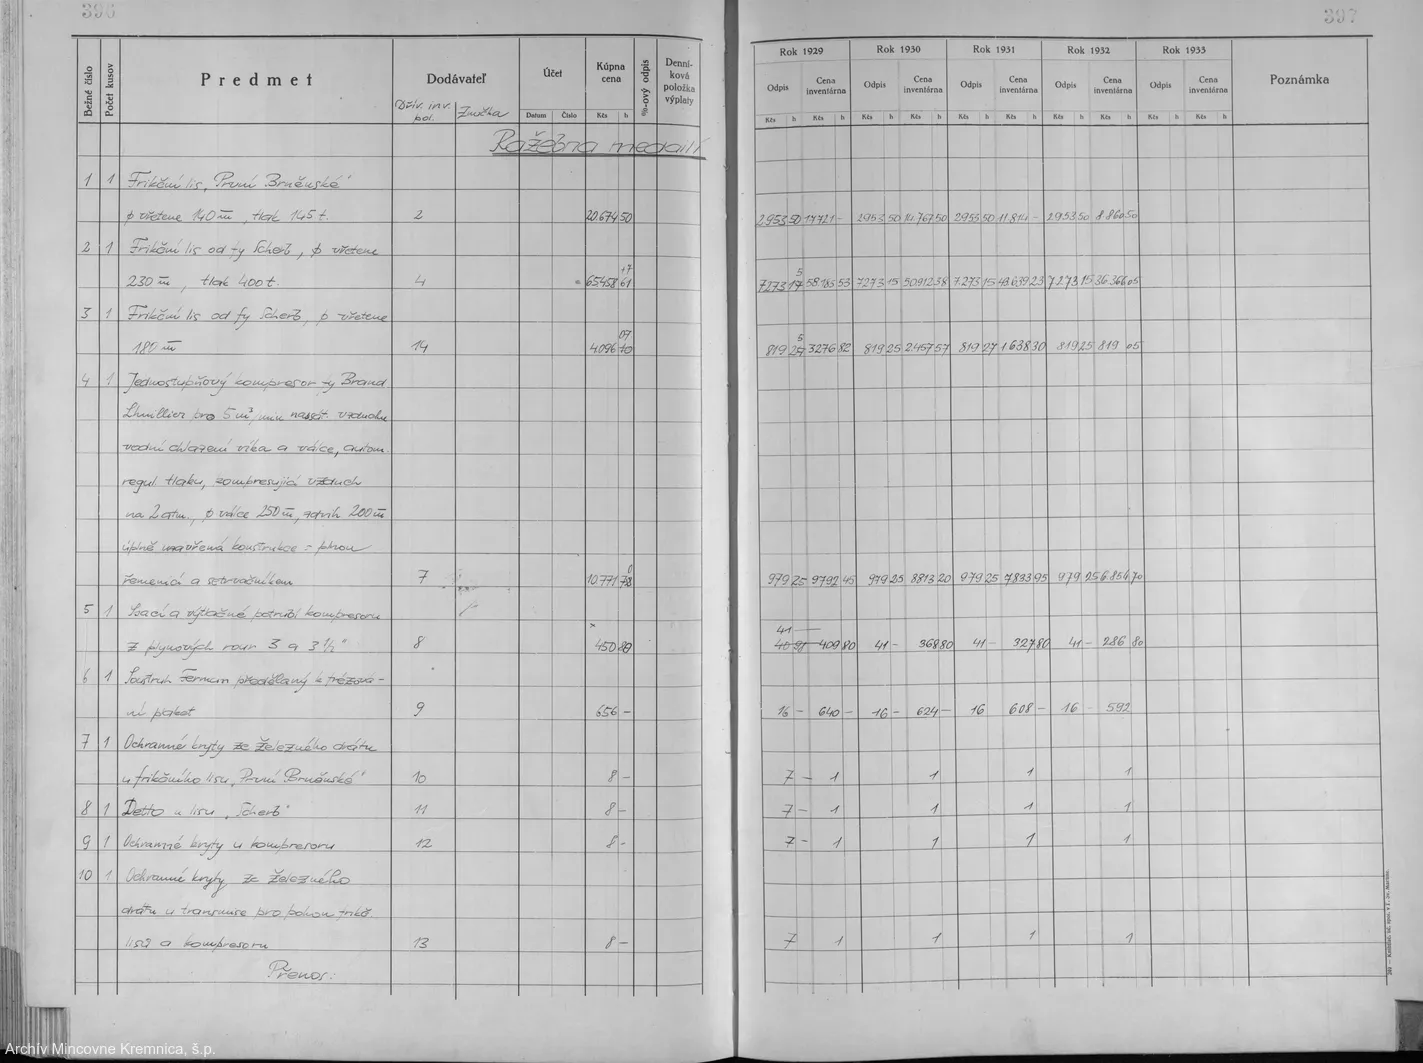 396
397
Bežné číslo
Počet kusov
Predmet
Dodávateľ
Účet
Kúpna cena
%-ový odpis
Denníková položka výplaty
Rok 1929 Rok 1930 Rok 1931 Rok 1932 Rok 1933
Poznámka
Odpis Cena inventárna Odpis Cena inventárna Odpis Cena inventárna Odpis Cena inventárna Odpis Cena inventárna
inv. pol. Značka Datum Číslo Kčs h
Kčs h Kčs h Kčs h Kčs h Kčs h Kčs h Kčs h Kčs h Kčs h Kčs h
Ražebna medailí
1 1 Frikční lis „První Brněnské"
φ vřetene 140 m̅, tlak 145 t. 2 20.674 50 2953 50 17721 - 2953 50 14.767 50 2953 50 11.814 - 2953 50 8.860 50
2 1 Frikční lis od fy Scherb, φ vřetene
230 m̅, tlak 400 t. 4 65458 61 17 7273 17 5 58.185 53 7273 15 50.912 38 7.273 15 43.639 23 7.273 15 36.366 05
3 1 Frikční lis od fy Scherb, φ vřetene
180 m̅ 14 4.096 10 07 819 27 5 3276 82 819 25 2.457 57 819 27 1.638 30 819 25 819 05
4 1 Jednostupňový kompresor fy Brand
Lhuillier pro 5 m³/min nassát. vzduchu
vodní chlazení víka a válce, autom.
regul. tlaku, kompresující vzduch
na 2 atm., φ válce 250 m̅, zdvih 200 m̅
úplně uzavřená konstrukce - pohon
řemenicí a setrvačníkem 7 10.771 78 0 979 25 9792 45 979 25 8813 20 979 25 7833 95 979 25 6.854 70
5 1 Ssací a výtlačné potrubí kompresoru
z plynových rour 3 a 3½" 8 450 80 41 - 409 80 41 - 368 80 41 - 327 80 41 - 286 80
6 1 Soustruh Ferrum předělaný k frézová-
ní 9 656 - 16 - 640 - 16 - 624 - 16 608 - 16 - 592
7 1 Ochranné kryty ze železného drátu
u frikčního lisu „První Brněnské" 10 8 - 7 - 1 1 1 1
8 1 Detto u lisu „Scherb" 11 8 - 7 - 1 1 1 1
9 1 Ochranné kryty u kompresoru 12 8 - 7 - 1 1 1 1
10 1 Ochranné kryty ze železného
drátu u transmise pro pohon frikč.
lisů a kompresoru 13 8 - 7 1 1 1 1
Přenos:
Archív Mincovne Kremnica, š.p.